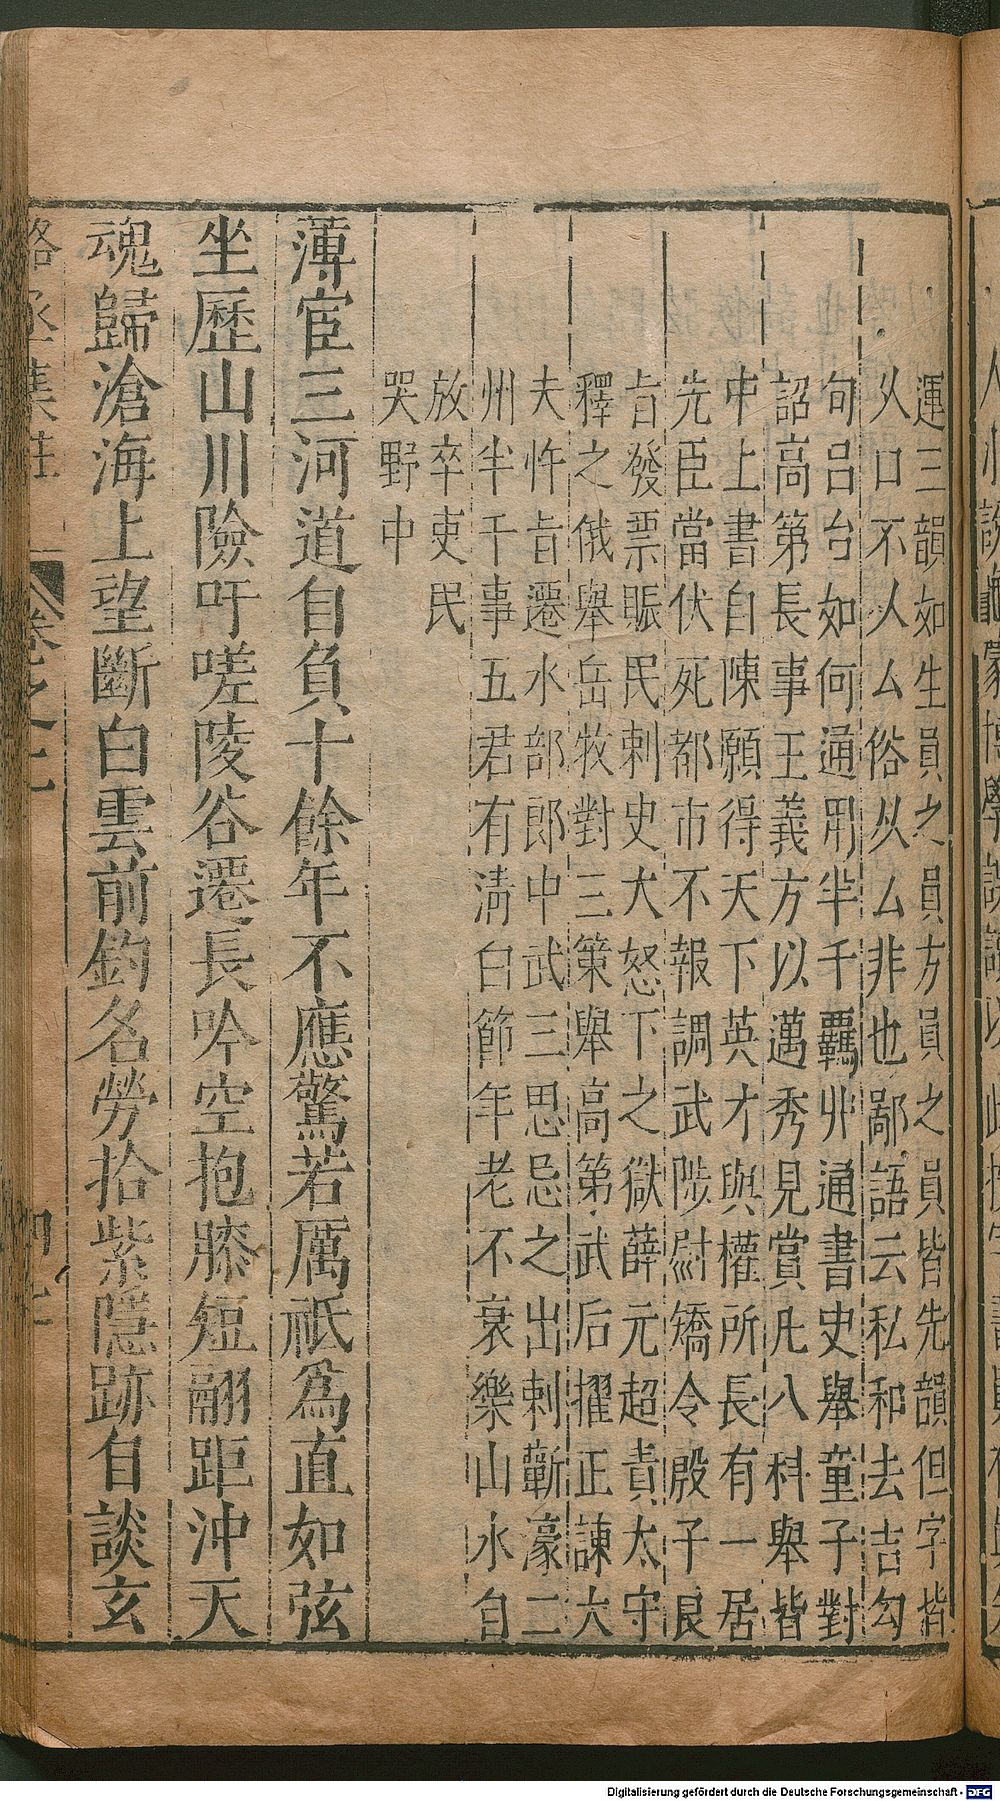 運三韻如生員之員方員之員皆先韻但字揩
从口不人厶俗从厶非也鄙語云私和去吉勾
句呂台如何通用半千羈丱通書史舉童子對
詔高第長事王義方以邁秀見賞凡八科舉皆
中上書自陳願得天下英才與權所長有一居
先臣當伏死都市不報調武陟尉矯令殷子良
旨發票賑民刺史大怒下之獄薛元超責太守
釋之俄舉岳牧對三策舉高第武后擢正諫大
夫忤旨遷水部郎中武三思忌之出刺蘄濠二
州半千事五君有清白節年老不衰樂山水自
放卒吏民
哭野中
薄宦三河道自負十餘年不應驚若厲祇為直如弦
坐歷山川險吁嗟陵谷遷長吟空抱膝短翮距沖天
魂歸滄海上望斷白雲前釣名勞拾紫隱跡自談玄
駱丞集註 卷之二
Digitalisierung gefördert durch die Deutsche Forschungsgemeinschaft - DFG